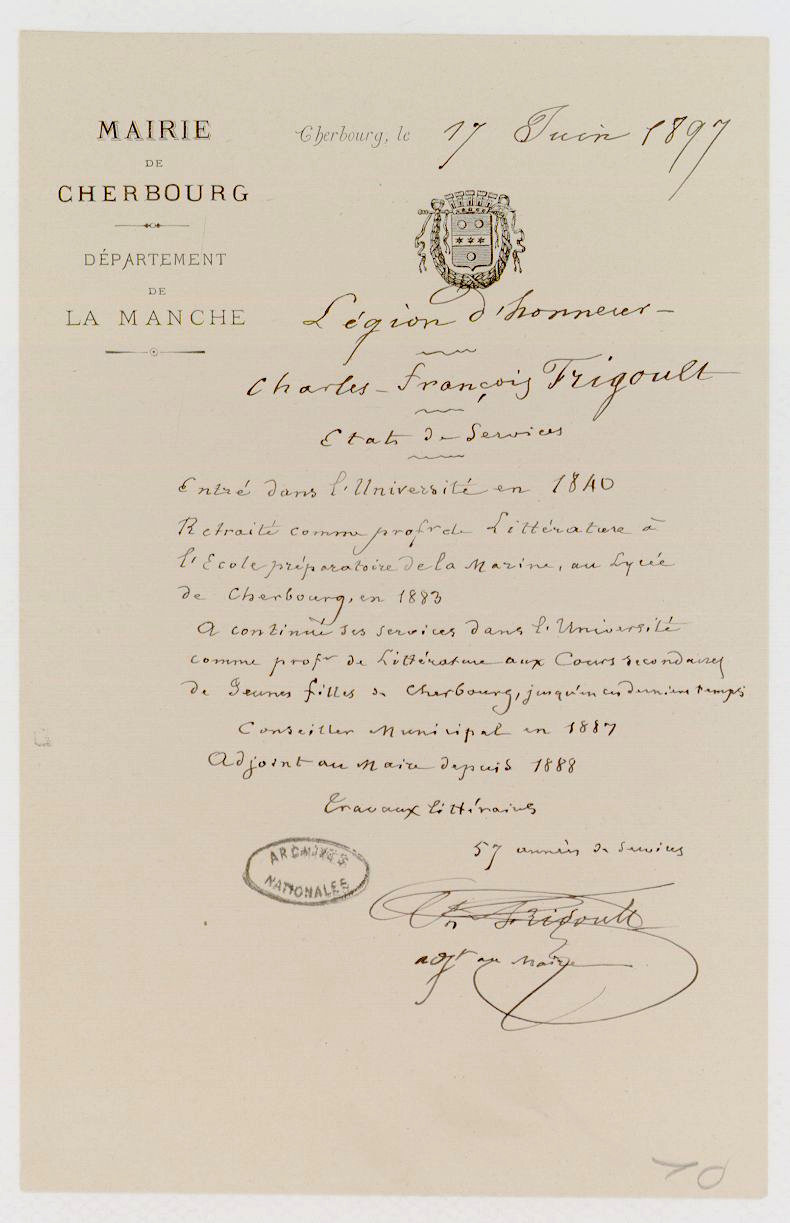 MAIRIE
DE
CHERBOURG
DÉPARTEMENT
DE
LA MANCHE
Cherbourg, le 17 Juin 1897
Légion d'honneur
Charles-François Frigoult
Etats de Services
Entré dans l'Université en 1840
Retraité comme profr de Littérature à
l'Ecole préparatoire de la Marine, au Lycée
de Cherbourg, en 1883
A continué ses services dans l'Université
comme profr de Littérature aux Cours secondaires
de Jeunes filles de Cherbourg, jusqu'en ces derniers temps
Conseiller Municipal en 1887
Adjoint au Maire depuis 1888
Travaux littéraires
57 années de services
ARCHIVES
NATIONALES
Ch Frigoult
adjt au Maire
10